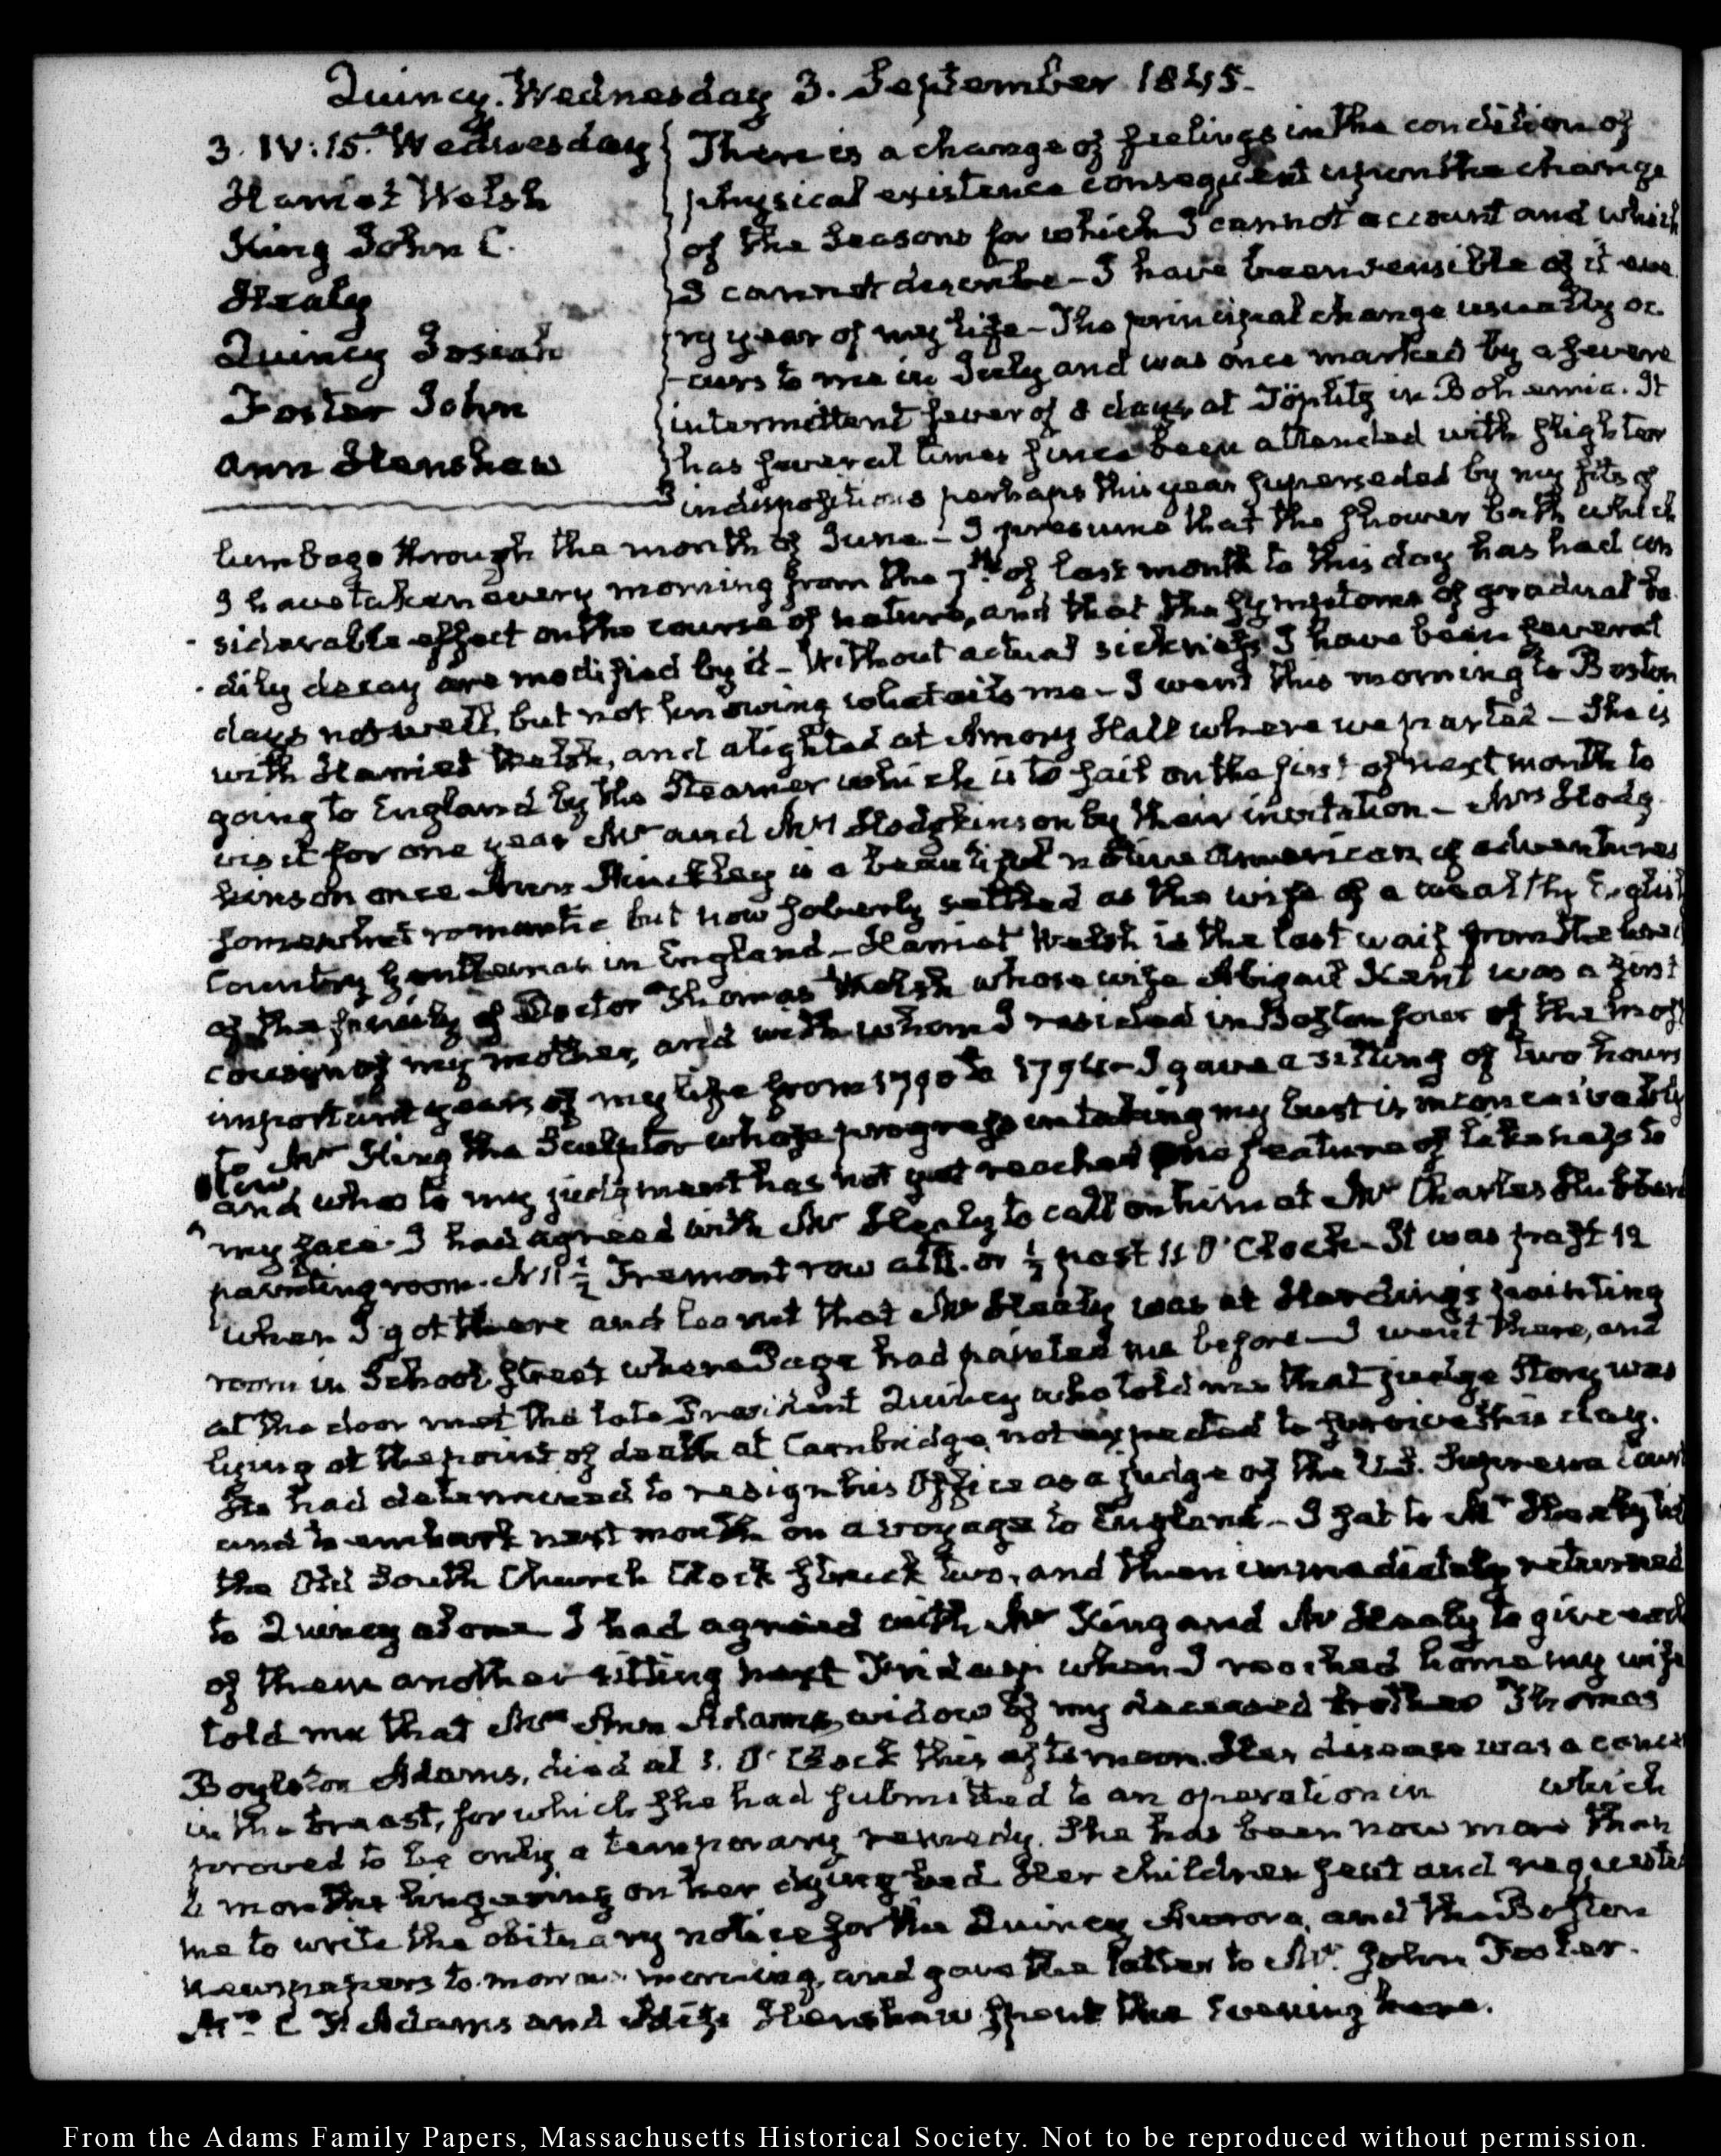 Quincy. Wednesday 3. September 1845.
3. IV:15. Wednesday
Harriet Welsh
King John C.
Healy
Quincy Josiah
Foster John
Ann Henshaw
There is a change of feelings in the condition of
physical existence consequent upon the change
of the Seasons for which I cannot account and which
I cannot describe - I have been sensible of it eve
ry year of my life - The principal change usually oc-
-curs to me in July and was once marked by a severe
intermittent fever of 8 days at Töplitz in Bohemia. It
has several times since been attended with slighter
indispositions perhaps this year superseded by my fits of
lumbago through the month of June - I presume that the shower bath which
I have taken every morning from the 7th of last month to this day has had con
siderable effect on the course of nature, and that the symptoms of gradual bo
dily decay are modified by it - Without actual sickness I have been several
days not well, but not knowing what ails me - I went this morning to Boston
with Harriet Welsh, and alighted at Amory Hall where we parted - She is
going to England by the Steamer which is to sail on the first of next month to
visit for one year Mr and Mrs Hodgkinson by their invitation - Mrs Hodg-
kinson once Ann Hinckley is a beautiful native American, of adventures
somewhat romantic but now soberly settled as the wife of a wealthy English
Country Gentleman in England - Harriet Welsh is the last waif from the
of the family of Doctor Thomas Welsh whose wife Abigail Kent was a first
cousin of my mother, and with whom I resided in Boston four of the most
important years of my life from 1790 to 1794 - I gave a sitting of two hours
to Mr King the Sculptor whose progress in taking my bust is inconceivably
slow,
and who to my judgment has not yet reached one feature of likeness to
my face. I had agreed with Mr Healy to call on him at Mr Charles Hubbard
painting room. N 11 1/2 Tremont row at 11. or 1/2 past 11 O'Clock - It was past 12
when I got there and learnt that Mr Healy was at Harding's painting
room in School Street where Page had painted me before - I went there, and
at the door met the late President Quincy who told me that judge Story was
lying at the point of death at Cambridge, not expected to survive this day.
He had determined to resign his Office as a judge of the U.S. Supreme Court
and to embark next month on a voyage to England - I sat to Mr Healy till
the Old South Church Clock struck two, and then immediately returned
to Quincy alone I had agreed with Mr King and Mr Healy to give each
of them another sitting next Friday. when I reached home my wife
told me that Mrs Ann Adams, widow of my deceased brother Thomas
Boylston Adams, died at 3. O'Clock this afternoon. Her disease was a cancer
in the breast, for which she had submitted to an operation in which
proved to be only a temporary remedy. She has been now more than
2 months lingering on her dying bed Her children sent and requested
me to write the obituary notice for the Quincy Aurora, and the Boston
newspapers to-morrow morning, and gave the latter to Mr. John Foster.
Mrs C F Adams and Miss Henshaw spent the Evening here.
From the Adams Family Papers, Massachusetts Historical Society. Not to be reproduced without permission.